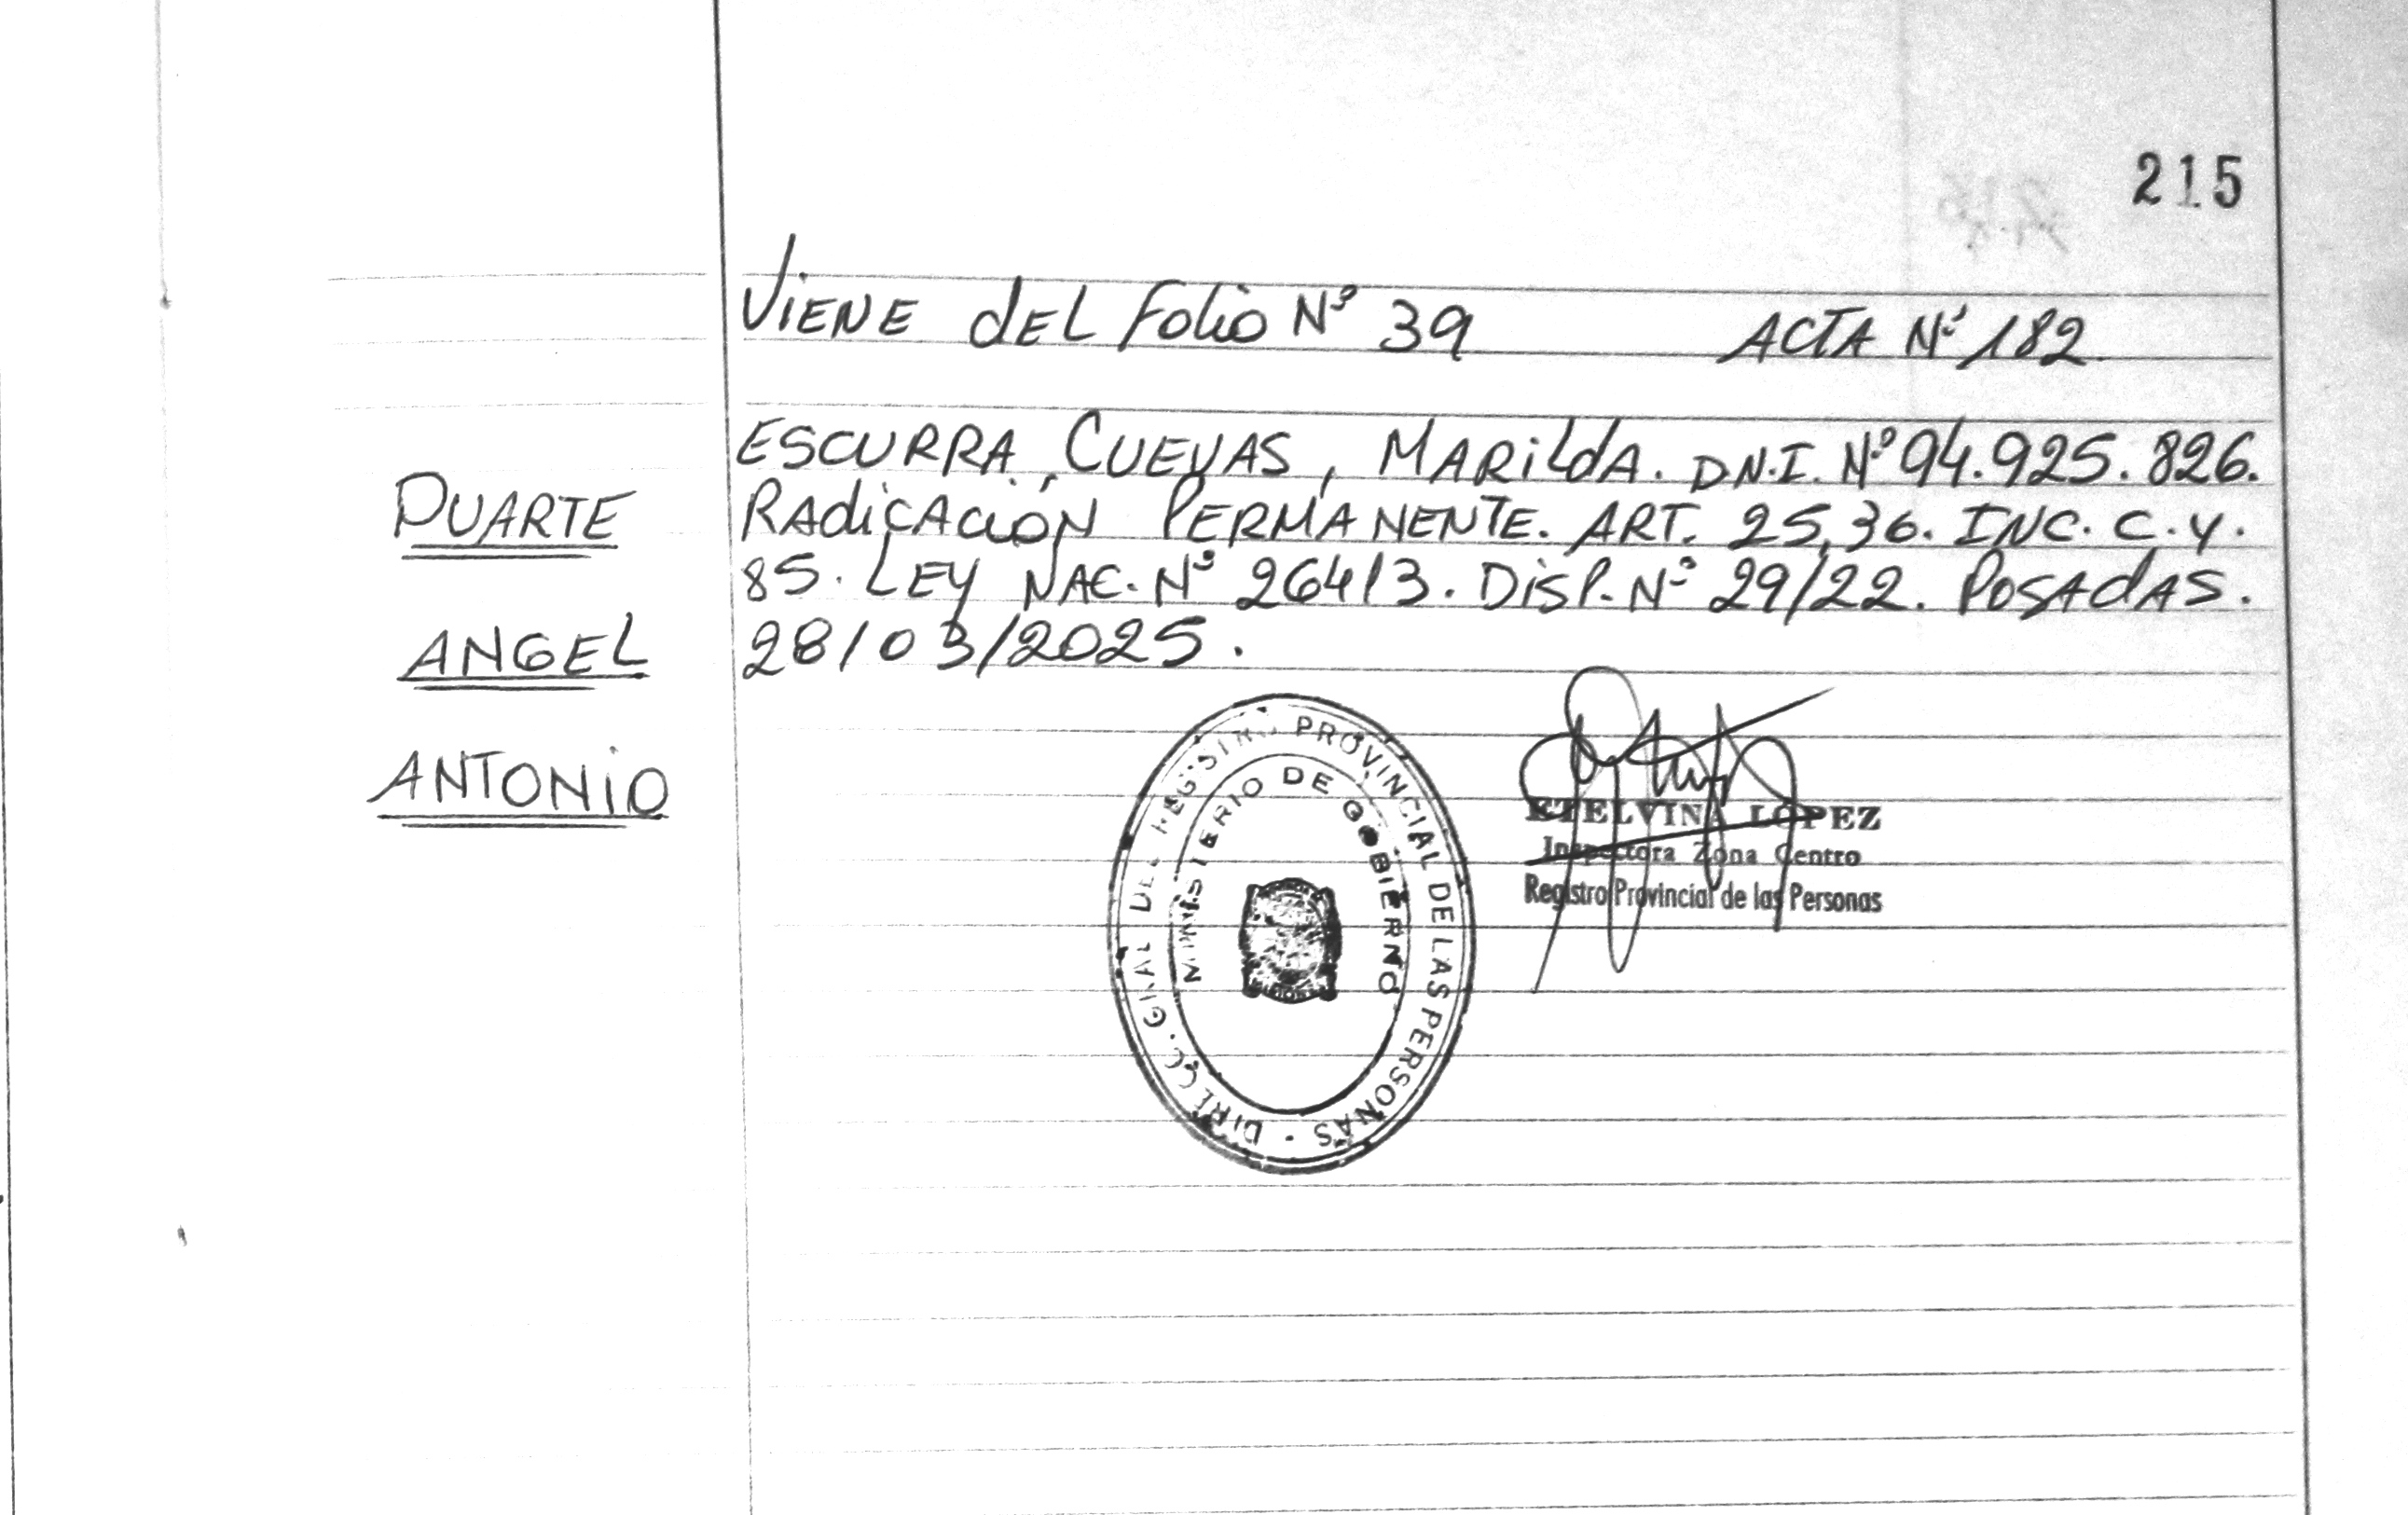 215
VIENE dEL Folio Nº 39 ACTA Nº 182.
ESCURRA, CUEVAS, MARILdA. DN.I. Nº 94.925.826.
RAdiCACIÓN PERMANENTE. ART. 25,36. INC. C.Y.
85. LEY NAC. Nº 26413. DISP. Nº 29/22. POSAdAS.
28/03/2025.
DUARTE
ANGEL
ANTONIO
ETELVINA LOPEZ
Inspectora Zona Centro
Registro Provincial de las Personas
DIRECC. GRAL DEL REGISTRO PROVINCIAL DE LAS PERSONAS
MINISTERIO DE GOBIERNO